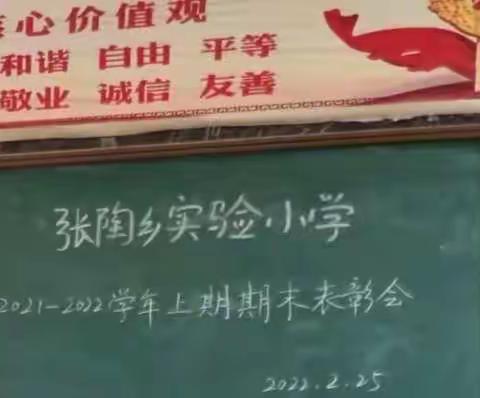 核心价值观
和谐 自由 平等
敬业 诚信 友善
张陶乡实验小学
2021-2022学年上期期末表彰会
2022.2.25